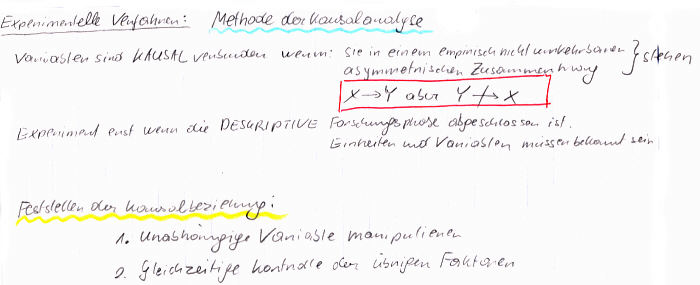 Experimentelle Verfahren: Methode der Kausalanalyse
Variablen sind KAUSAL verbunden wenn: sie in einem empirisch nicht umkehrbaren
asymmetrischen Zusammenhang } stehen
X → Y aber Y ↛ X
Experiment erst wenn die DESCRIPTIVE Forschungsphase abgeschlossen ist.
Einheiten und Variablen müssen bekannt sein
Feststellen der Kausalbeziehung:
1. Unabhängige Variable manipulieren
2. Gleichzeitige Kontrolle der übrigen Faktoren